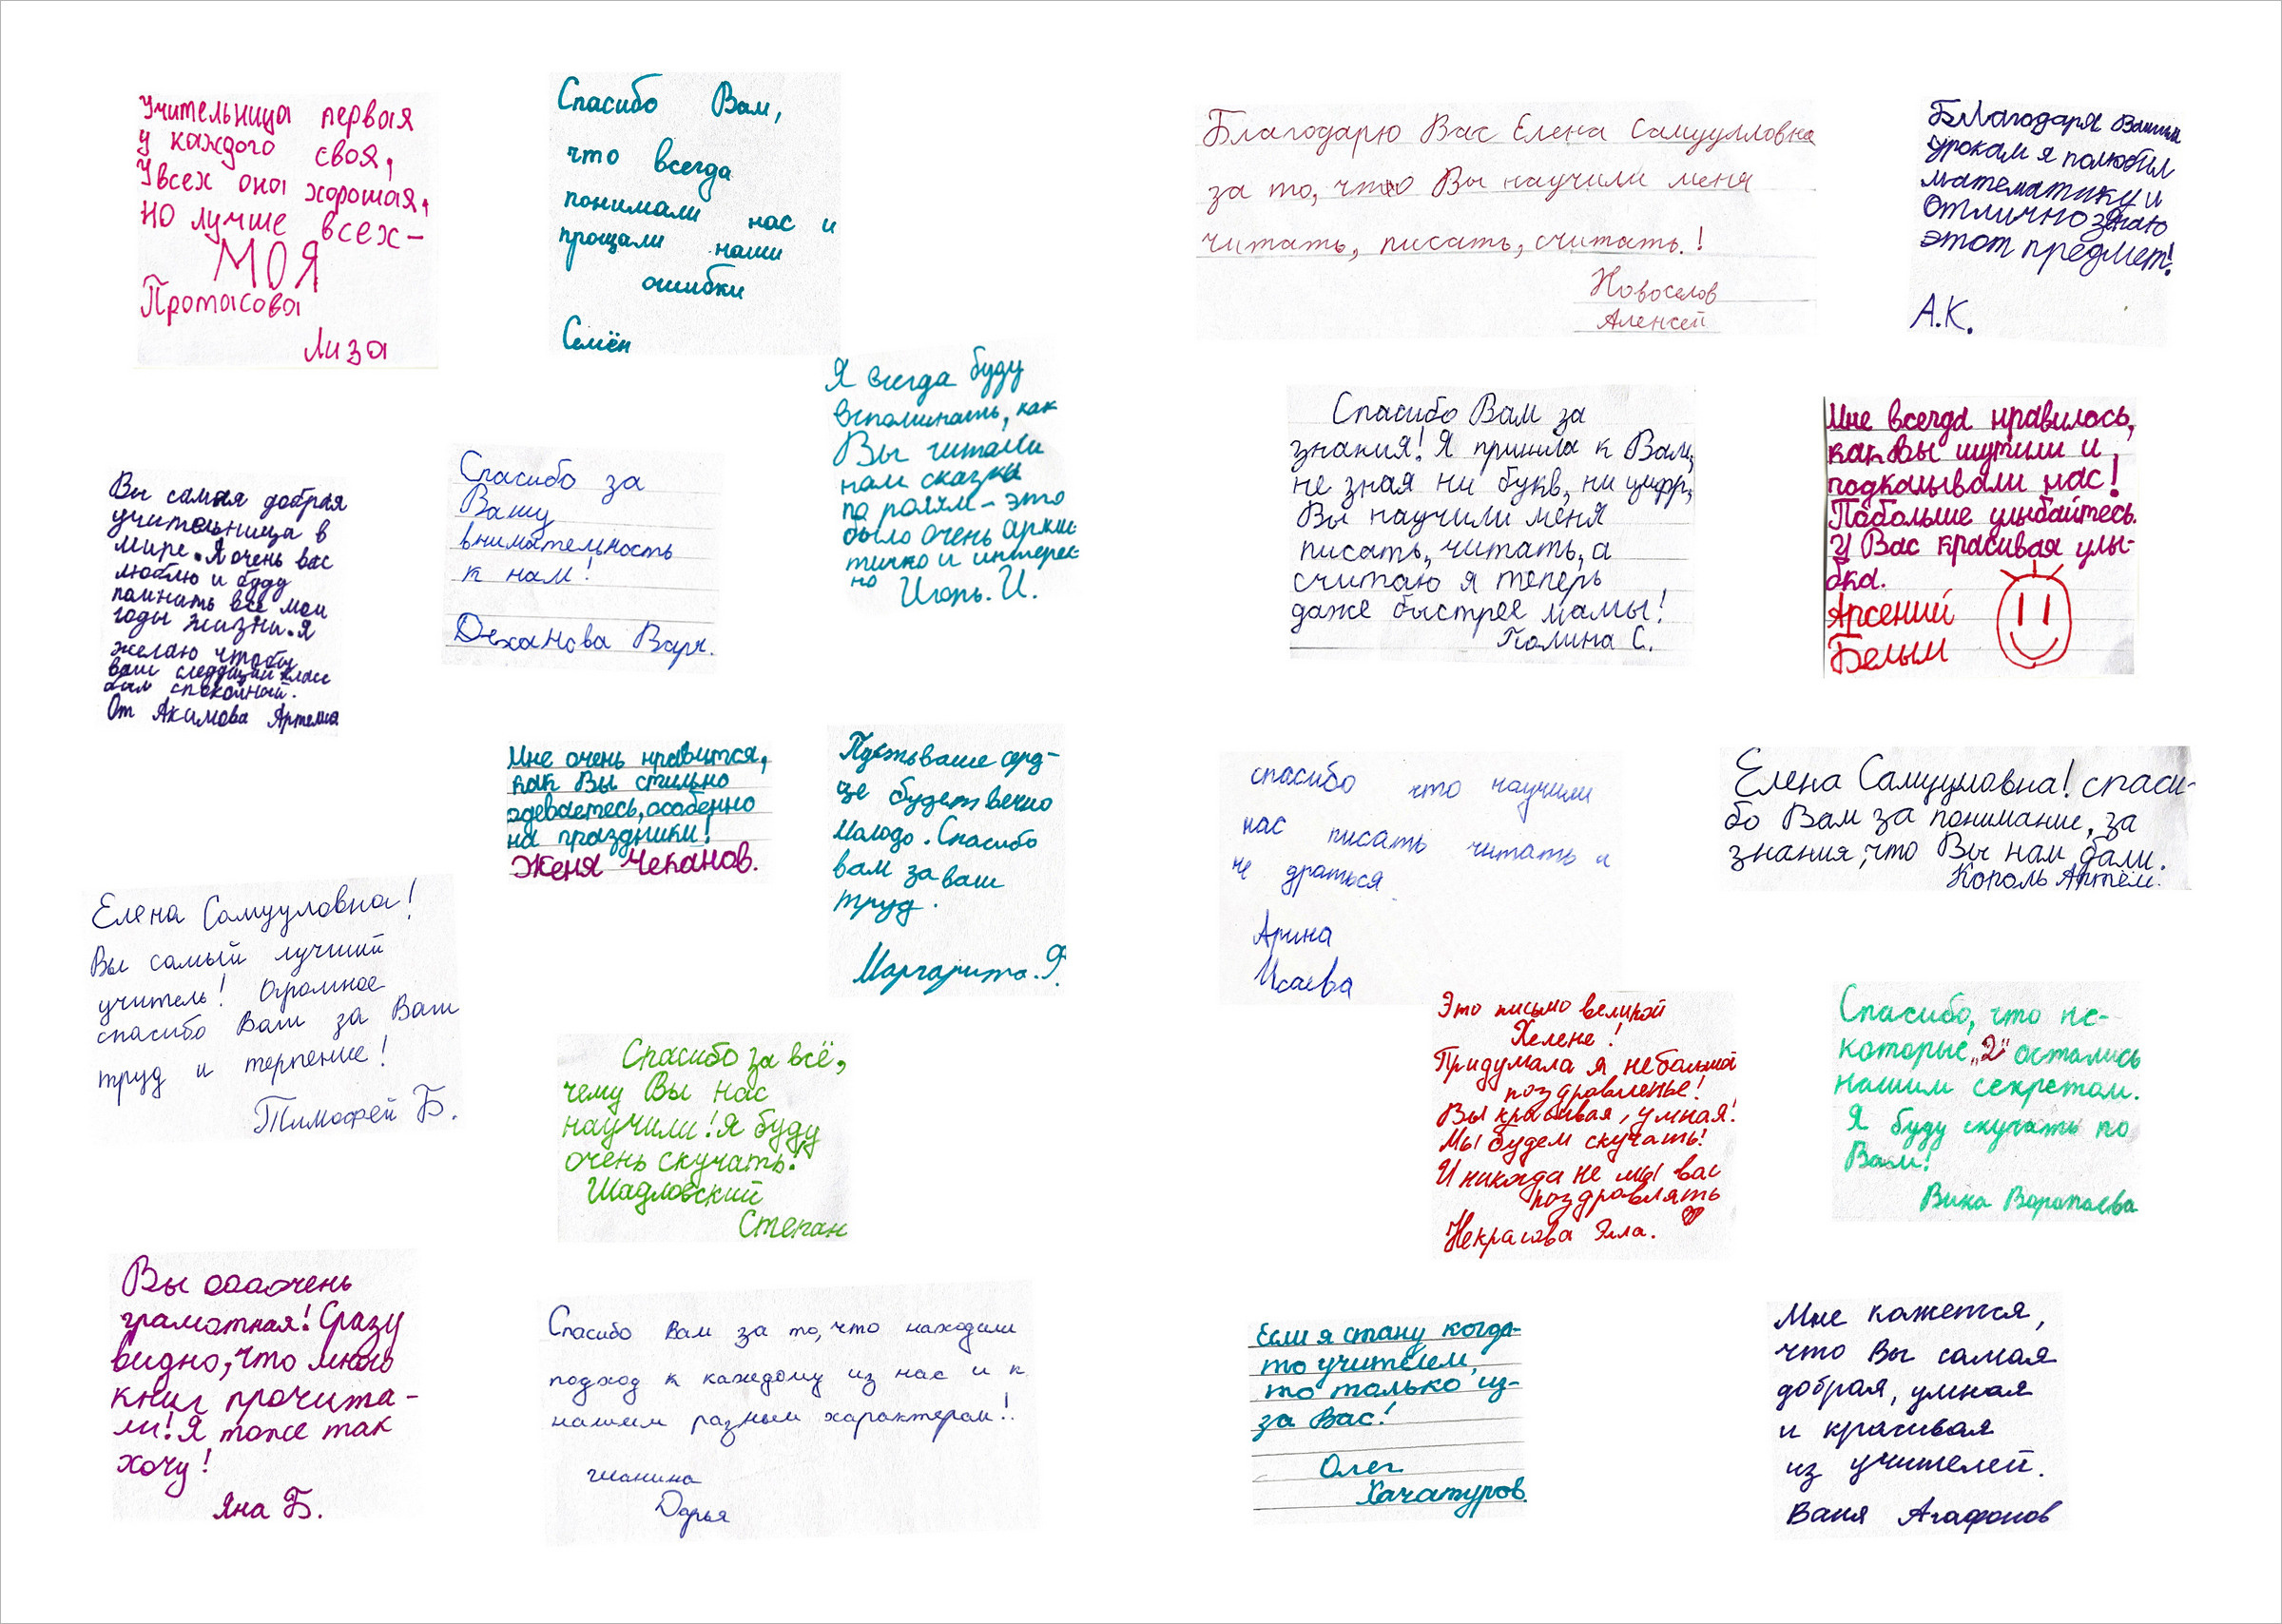 Учительница первая
у каждого своя,
У всех она хорошая,
но лучше всех-
МОЯ
Протасова
Лиза
Спасибо Вам,
что всегда
понимали нас и
прощали наши
ошибки
Семён
Я всегда буду
вспоминать, как
Вы читали
нам сказки
по ролям - это
было очень арти
тично и интерес
но Игорь. И.
Вы самая добрая
учительница в
мире. Я очень вас
люблю и буду
помнить все мои
годы жизни. Я
желаю чтобы
ваш следующий класс
был спокойный.
От Акимова Артема
Спасибо за
Вашу
внимательность
к нам!
Деханова Варя.
Мне очень нравится,
как Вы стильно
одеваетесь, особенно
на праздники!
Женя Чеканов.
Пусть ваше серд-
це будет вечно
молодо. Спасибо
вам за ваш
труд.
Маргарита. Я.
Елена Самууловна!
Вы самый лучший
учитель! Огромное
спасибо Вам за Ваш
труд и терпение!
Тимофей Б.
Спасибо за всё,
чему Вы нас
научили! Я буду
очень скучать!
Шадловский
Степан
Вы оооочень
грамотная! Сразу
видно, что много
книг прочита-
ли! Я тоже так
хочу!
Яна Б.
Спасибо Вам за то, что находили
подход к каждому из нас и к
нашим разным характерам!.
Шанина
Дарья
Благодарю Вас Елена Самуулловна
за то, что Вы научили меня
читать, писать, считать.!
Новоселов
Алексей
Благодаря Вашим
урокам я полюбил
математику и
отлично знаю
этот предмет!
А.К.
Спасибо Вам за
знания! Я пришла к Вам,
не зная ни букв, ни цифр,
Вы научили меня
писать, читать, а
считаю я теперь
даже быстрее мамы!
Полина С.
Мне всегда нравилось,
как Вы шутили и
подкалывали нас!
Побольше улыбайтесь.
У Вас красивая улы-
бка.
Арсений
Белым
спасибо что научили
нас писать читать и
не драться
Арина
Исаева
Елена Самууловна! спаси-
бо Вам за понимание, за
знания, что Вы нам дали.
Король Артём.
Это письмо великой
Хелене!
Придумала я небольшой
поздравленье!
Вы красивая, умная!
Мы будем скучать!
И никогда не мы вас
поздравлять
Некрасова Элла.
Спасибо, что не-
которые „2" остались
нашим секретом.
Я буду скучать по
Вам!
Вика Варапаева
Если я стану когда-
то учителем,
то только из-
за Вас!
Олег
Хачатуров.
Мне кажется,
что Вы самая
добрая, умная
и красивая
из учителей.
Ваня Агафонов